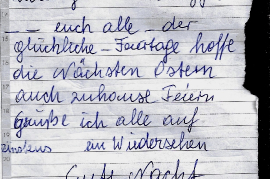 euch alle – der
glückliche – Feiertage hoffe
die Nächsten Ostern
auch zuhause Feiern
Grüße ich alle auf
ein Wiedersehen
Gute Nacht